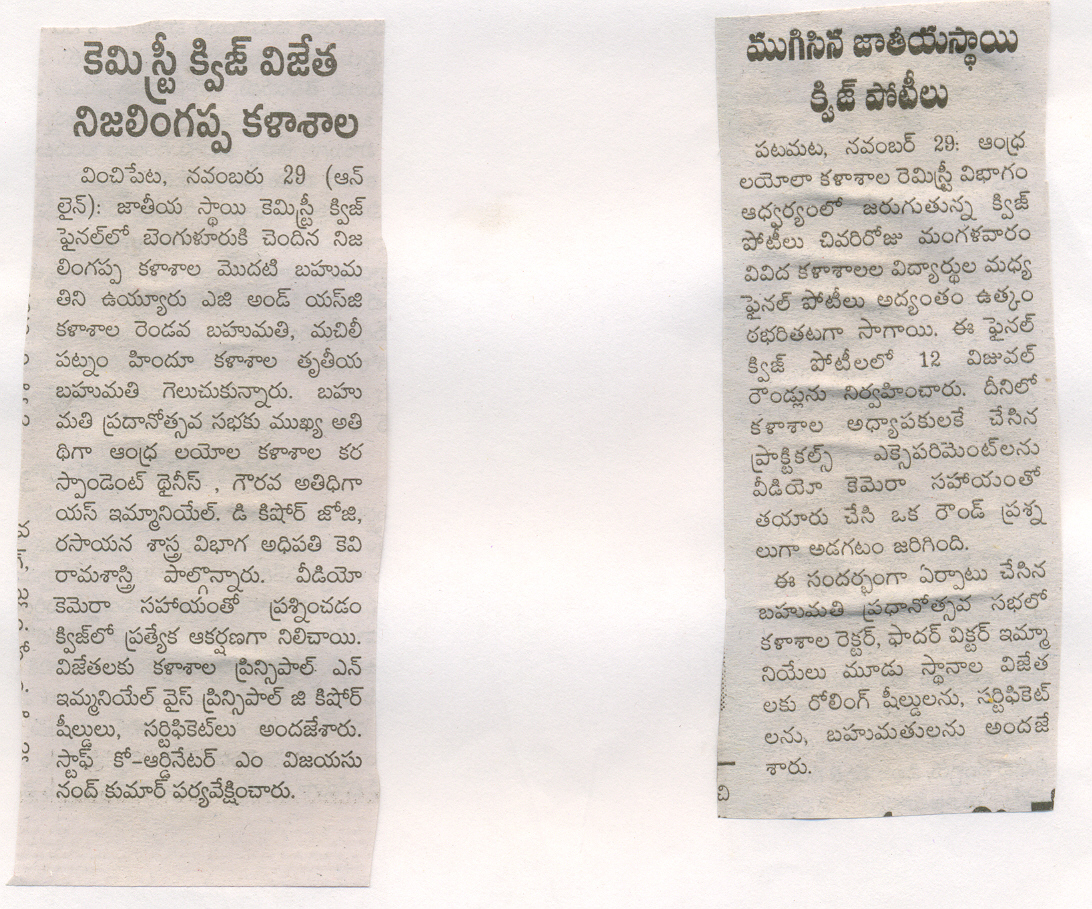 కెమిస్ట్రీ క్విజ్ విజేత
నిజలింగప్ప కళాశాల
వించిపేట, నవంబరు 29 (ఆన్
లైన్): జాతీయ స్థాయి కెమిస్ట్రీ క్విజ్
ఫైనల్‌లో బెంగుళూరుకి చెందిన నిజ
లింగప్ప కళాశాల మొదటి బహుమ
తిని ఉయ్యూరు ఎజి అండ్ యస్‌జి
కళాశాల రెండవ బహుమతి, మచిలీ
పట్నం హిందూ కళాశాల తృతీయ
బహుమతి గెలుచుకున్నారు. బహు
మతి ప్రదానోత్సవ సభకు ముఖ్య అతి
థిగా ఆంధ్ర లయోల కళాశాల కర
స్పాండెంట్ థైనీస్ , గౌరవ అతిధిగా
యస్ ఇమ్మానియేల్. డి కిషోర్ జోజి,
రసాయన శాస్త్ర విభాగ అధిపతి కెవి
రామశాస్త్రి పాల్గొన్నారు. వీడియో
కెమెరా సహాయంతో ప్రశ్నించడం
క్విజ్‌లో ప్రత్యేక ఆకర్షణగా నిలిచాయి.
విజేతలకు కళాశాల ప్రిన్సిపాల్ ఎన్
ఇమ్మనియేల్ వైస్ ప్రిన్సిపాల్ జి కిషోర్
షీల్డులు, సర్టిఫికెట్‌లు అందజేశారు.
స్టాఫ్ కో-ఆర్డినేటర్ ఎం విజయసు
నంద్ కుమార్ పర్యవేక్షించారు.
ముగిసిన జాతీయస్థాయి
క్విజ్ పోటీలు
పటమట, నవంబర్ 29: ఆంధ్ర
లయోలా కళాశాల రెమిస్ట్రీ విభాగం
ఆధ్వర్యంలో జరుగుతున్న క్విజ్
పోటీలు చివరిరోజు మంగళవారం
వివిద కళాశాలల విద్యార్థుల మధ్య
ఫైనల్ పోటీలు అద్యంతం ఉత్కం
ఠభరితటగా సాగాయి. ఈ ఫైనల్
క్విజ్ పోటీలలో 12 విజువల్
రౌండ్లును నిర్వహించారు. దీనిలో
కళాశాల అధ్యాపకులకే చేసిన
ప్రాక్టికల్స్ ఎక్సెపరిమెంట్‌లను
వీడియో కెమెరా సహాయంతో
తయారు చేసి ఒక రౌండ్ ప్రశ్న
లుగా అడగటం జరిగింది.
ఈ సందర్భంగా ఏర్పాటు చేసిన
బహుమతి ప్రధానోత్సవ సభలో
కళాశాల రెక్టర్, ఫాదర్ విక్టర్ ఇమ్మా
నియేలు మూడు స్థానాల విజేత
లకు రోలింగ్ షీల్డులను, సర్టిఫికెట్
లను, బహుమతులను అందజే
శారు.